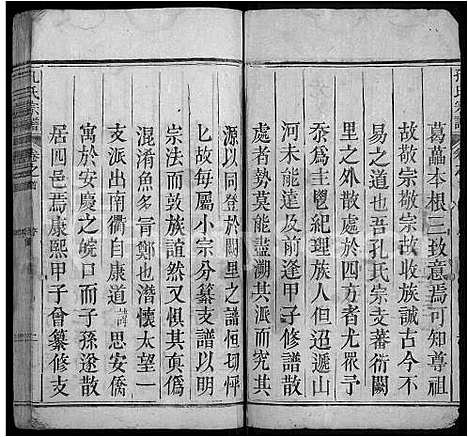 葛藟本根三致意焉可知尊祖
故敬宗敬宗故收族誠古今不
易之道也吾孔氏宗支蕃衍闕
里之外散處於四方者尤眾予
忝爲主鬯紀理族人但迢遞山
河未能達及前逢甲子卽散
處者勢莫能盡溯其
源以同登於闕里之譜恒切怦
匕故每屬小宗分纂支譜以明
宗法而篤族誼然又惧其眞僞
混淆魚多胥鄭也濳懷太望一
支派出南衢自康道譜思安僑
寓於安慶之皖口而子孫遂散
居四邑焉康熙甲子曾纂修支
孔氏宗譜
卷之首